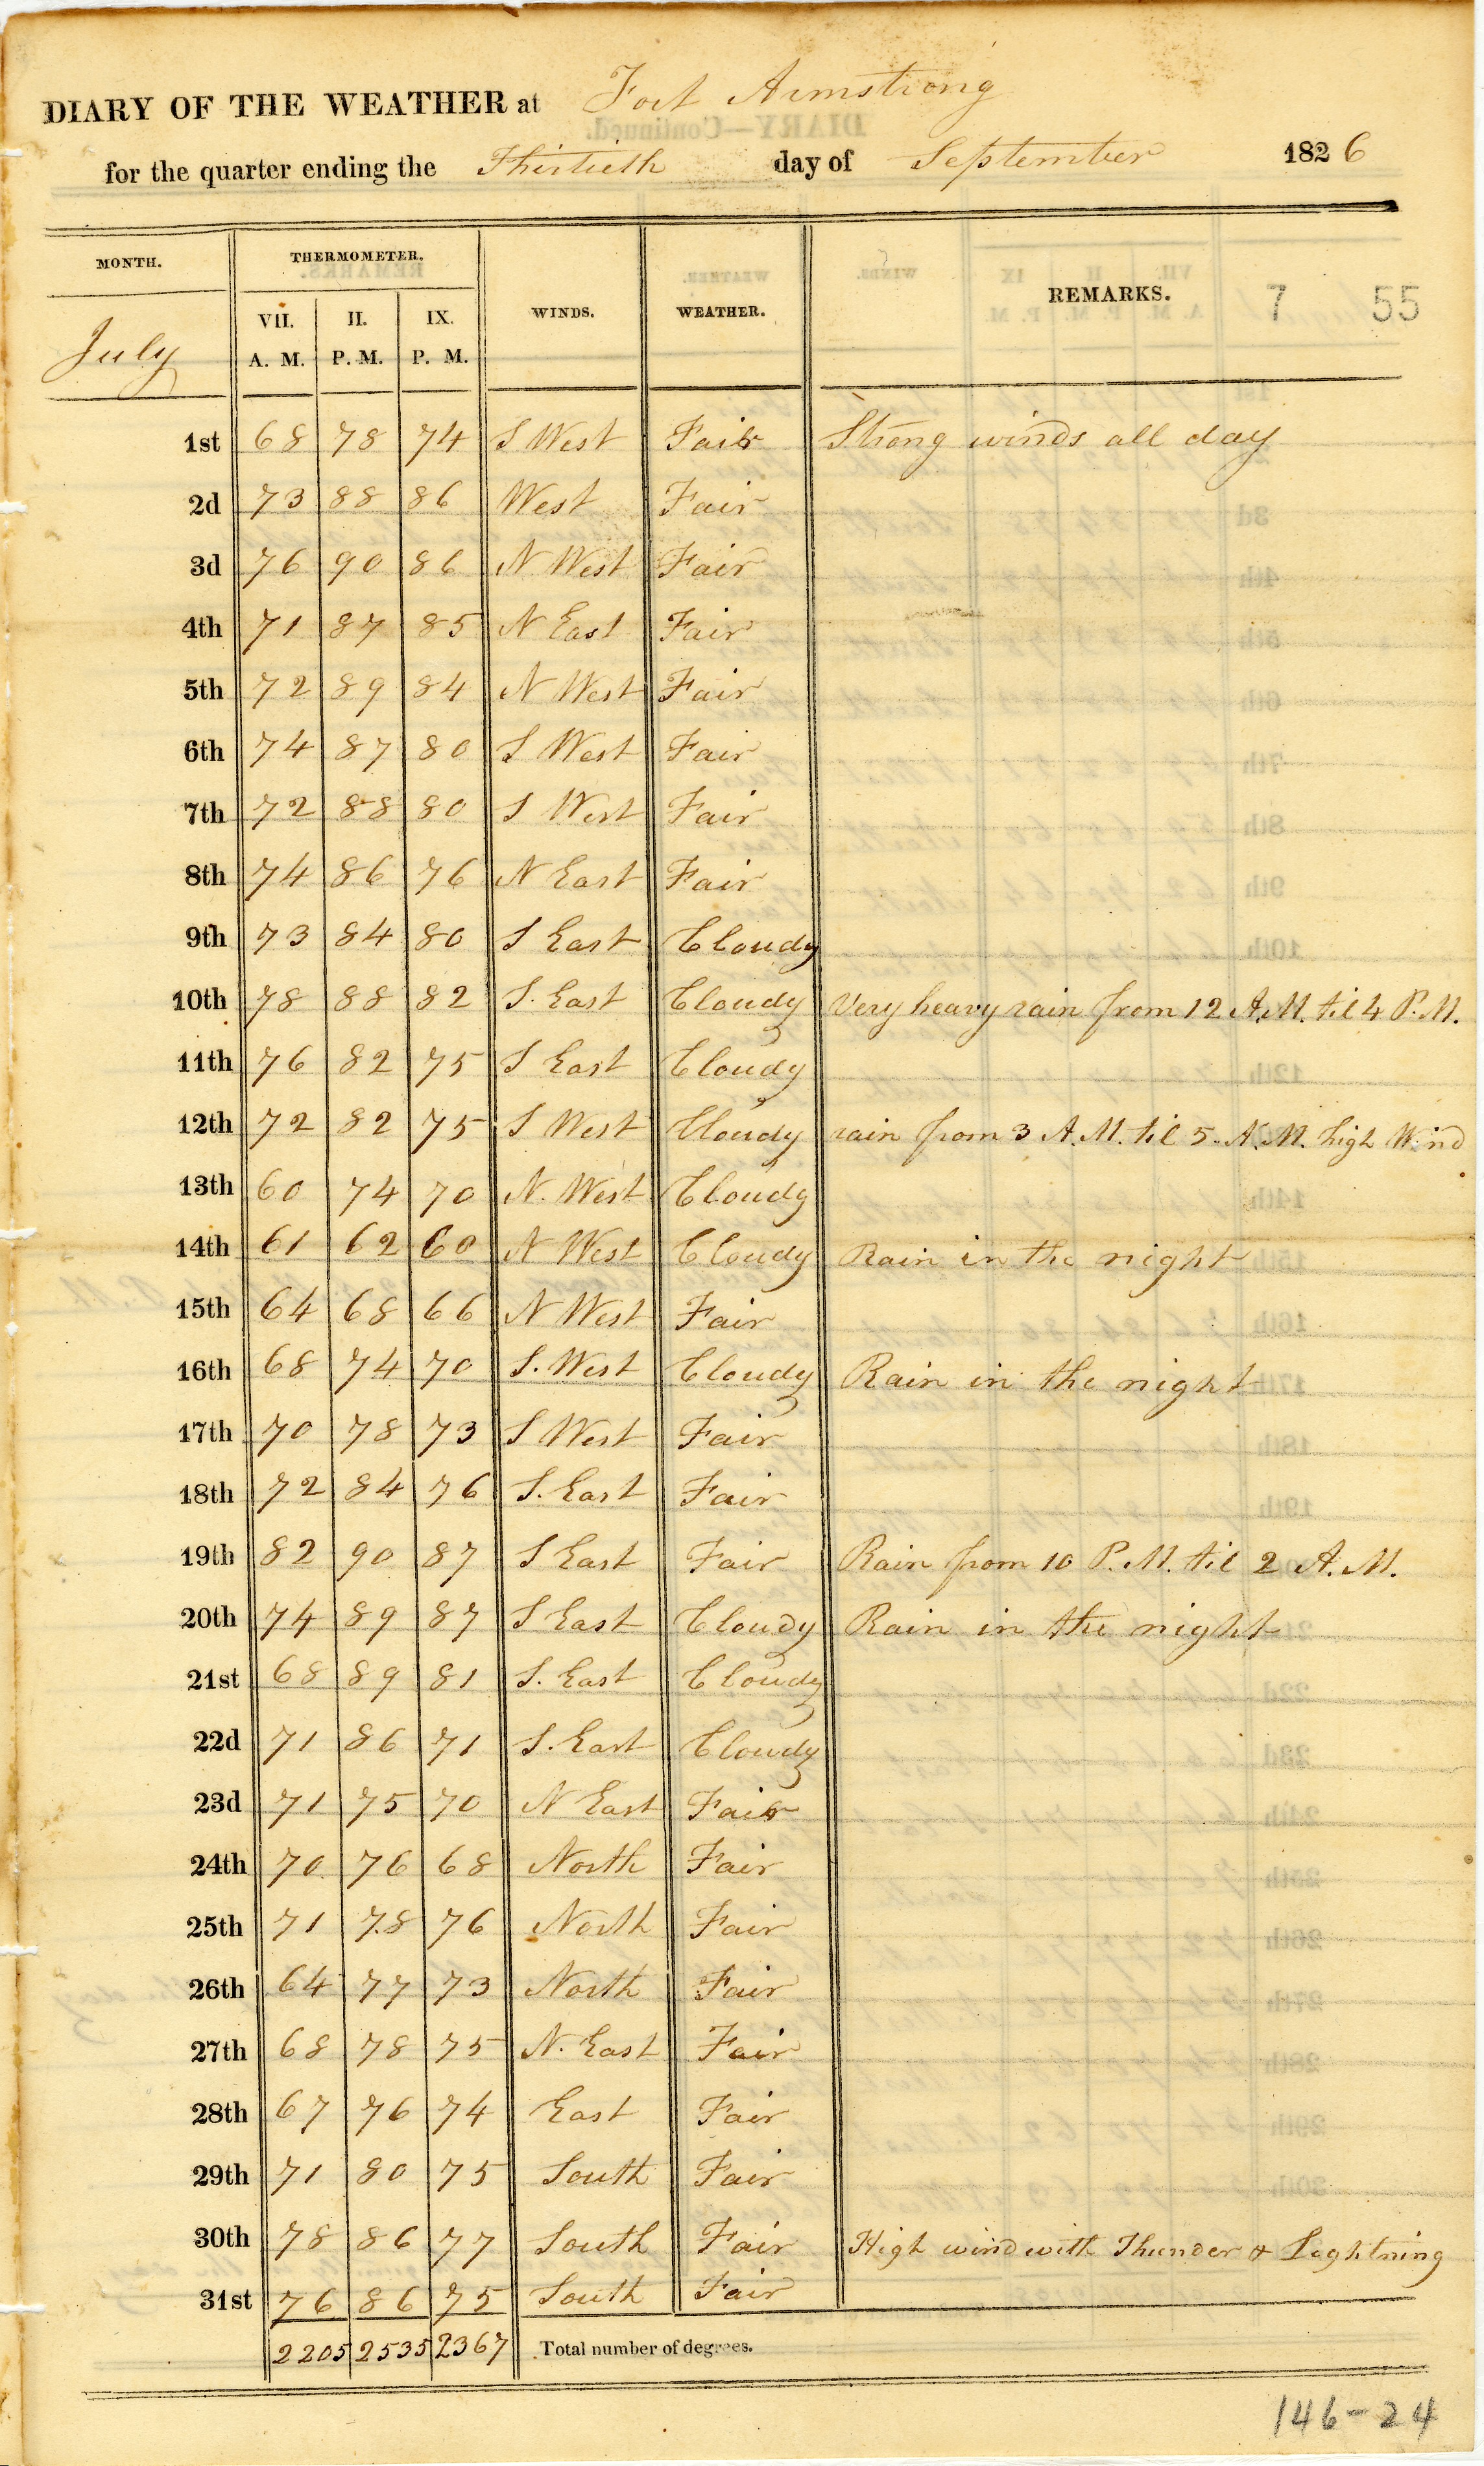 DIARY OF THE WEATHER at Fort Armstrong
for the quarter ending the Thirtieth day of September 1826
MONTH. THERMOMETER. WINDS. WEATHER. REMARKS. 7 55
July VII. A. M. II. P. M. IX. P. M.
1st 68 78 74 S West Fair Strong winds all day
2d 73 88 86 West Fair
3d 76 90 86 N West Fair
4th 71 87 85 N East Fair
5th 72 89 84 N West Fair
6th 74 87 80 S West Fair
7th 72 88 80 S West Fair
8th 74 86 76 N East Fair
9th 73 84 80 S East Cloudy
10th 78 88 82 S. East Cloudy Very heavy rain from 12 A.M. til 4 P.M.
11th 76 82 75 S East Cloudy
12th 72 82 75 S West Cloudy rain from 3 A.M. til 5 A.M. high Wind
13th 60 74 70 N. West Cloudy
14th 61 62 60 N West Cloudy Rain in the night
15th 64 68 66 N West Fair
16th 68 74 70 S. West Cloudy Rain in the night
17th 70 78 73 S West Fair
18th 72 84 76 S. East Fair
19th 82 90 87 S East Fair Rain from 10 P.M. til 2 A.M.
20th 74 89 87 S East Cloudy Rain in the night
21st 68 89 81 S. East Cloudy
22d 71 86 71 S. East Cloudy
23d 71 75 70 N East Fair
24th 70 76 68 North Fair
25th 71 78 76 North Fair
26th 64 77 73 North Fair
27th 68 78 75 N. East Fair
28th 67 76 74 East Fair
29th 71 80 75 South Fair
30th 78 86 77 South Fair High wind with Thunder & Lightning
31st 76 86 75 South Fair
2205 2535 2367 Total number of degrees.
146-24